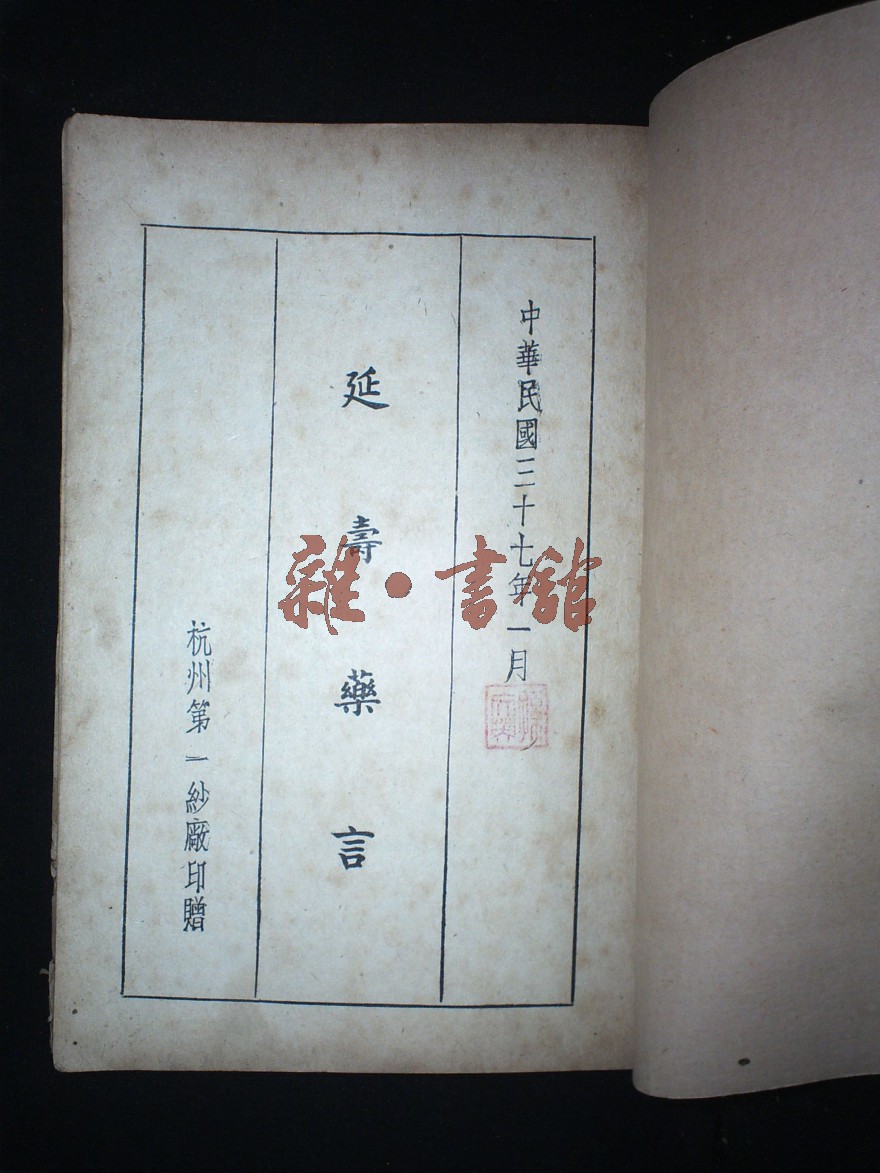 中華民國三十七年一月
延壽藥言
杭州第一紗廠印贈
雜·書館